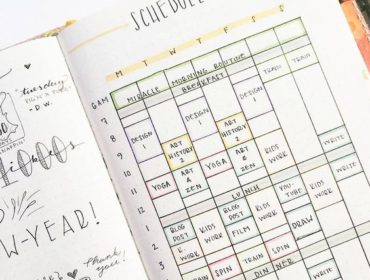 SCHEDULE
M T W T F S S
6AM MIRACLE MORNING ROUTINE
TRAIN TRAIN
7 BREAKFAST
8 DESIGN 1 DESIGN 1
9 ART HISTORY 2 ART HISTORY 2
10 WRITE
YOGA ART & ZEN YOGA ART & ZEN KIDS WORK
11
12 LUNCH
1 BLOG POST KIDS WORK BLOG POST KIDS WORK YOUTUBE KIDS WORK WRITE
2 K. WORK FILM DRAW
3 TRAIN SPIN TRAIN SPIN KIDS WORK
DINNER
tuesday
-D.W.
W-YEAR!
thank you!